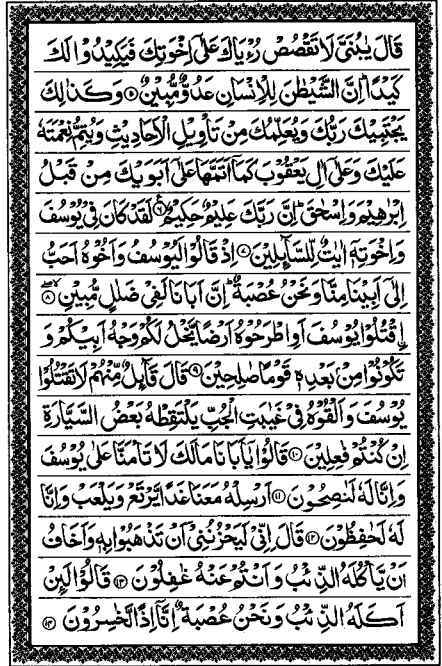 قَالَ يٰبُنَىَّ لَا تَقْصُصْ رُءْيَاكَ عَلٰٓى اِخْوَتِكَ فَيَكِيْدُوْا لَكَ
كَيْدًا ؕ اِنَّ الشَّيْطٰنَ لِلْاِنْسَانِ عَدُوٌّ مُّبِيْنٌ ۵ وَكَذٰلِكَ
يَجْتَبِيْكَ رَبُّكَ وَيُعَلِّمُكَ مِنْ تَاْوِيْلِ الْاَحَادِيْثِ وَيُتِمُّ نِعْمَتَهٗ
عَلَيْكَ وَعَلٰٓى اٰلِ يَعْقُوْبَ كَمَاۤ اَتَمَّهَا عَلٰٓى اَبَوَيْكَ مِنْ قَبْلُ
اِبْرٰهِيْمَ وَاِسْحٰقَ ؕ اِنَّ رَبَّكَ عَلِيْمٌ حَكِيْمٌ ۶ لَقَدْ كَانَ فِىْ يُوْسُفَ
وَاِخْوَتِهٖۤ اٰيٰتٌ لِّلسَّآئِلِيْنَ ۷ اِذْ قَالُوْا لَيُوْسُفُ وَاَخُوْهُ اَحَبُّ
اِلٰٓى اَبِيْنَا مِنَّا وَنَحْنُ عُصْبَةٌ ؕ اِنَّ اَبَانَا لَفِىْ ضَلٰلٍ مُّبِيْنِ ۸
اِۨقْتُلُوْا يُوْسُفَ اَوِ اطْرَحُوْهُ اَرْضًا يَّخْلُ لَكُمْ وَجْهُ اَبِيْكُمْ وَ
تَكُوْنُوْا مِنْۢ بَعْدِهٖ قَوْمًا صٰلِحِيْنَ ۹ قَالَ قَآئِلٌ مِّنْهُمْ لَا تَقْتُلُوْا
يُوْسُفَ وَاَلْقُوْهُ فِىْ غَيٰبَتِ الْجُبِّ يَلْتَقِطْهُ بَعْضُ السَّيَّارَةِ
اِنْ كُنْتُمْ فٰعِلِيْنَ ۱۰ قَالُوْا يٰۤاَبَانَا مَالَكَ لَا تَاْمَنَّا عَلٰى يُوْسُفَ
وَاِنَّا لَهٗ لَنٰصِحُوْنَ ۱۱ اَرْسِلْهُ مَعَنَا غَدًا يَّرْتَعْ وَيَلْعَبْ وَاِنَّا
لَهٗ لَحٰفِظُوْنَ ۱۲ قَالَ اِنِّىْ لَيَحْزُنُنِىْۤ اَنْ تَذْهَبُوْا بِهٖ وَاَخَافُ
اَنْ يَّاْكُلَهُ الذِّئْبُ وَاَنْتُمْ عَنْهُ غٰفِلُوْنَ ۱۳ قَالُوْا لَئِنْ
اَكَلَهُ الذِّئْبُ وَنَحْنُ عُصْبَةٌ اِنَّاۤ اِذًا لَّخٰسِرُوْنَ ۱۴